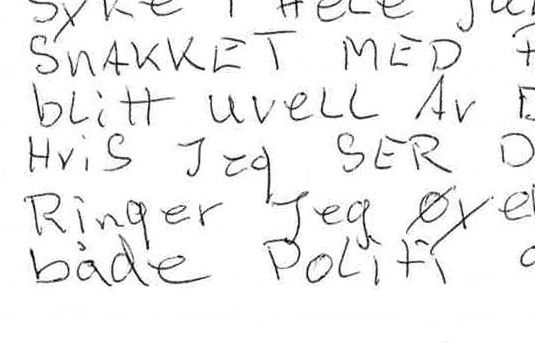 Syke I Hele
SNAKKET MED
blitt uvell Av
HviS Jeg SER D
Ringer Jeg øye
både Politi